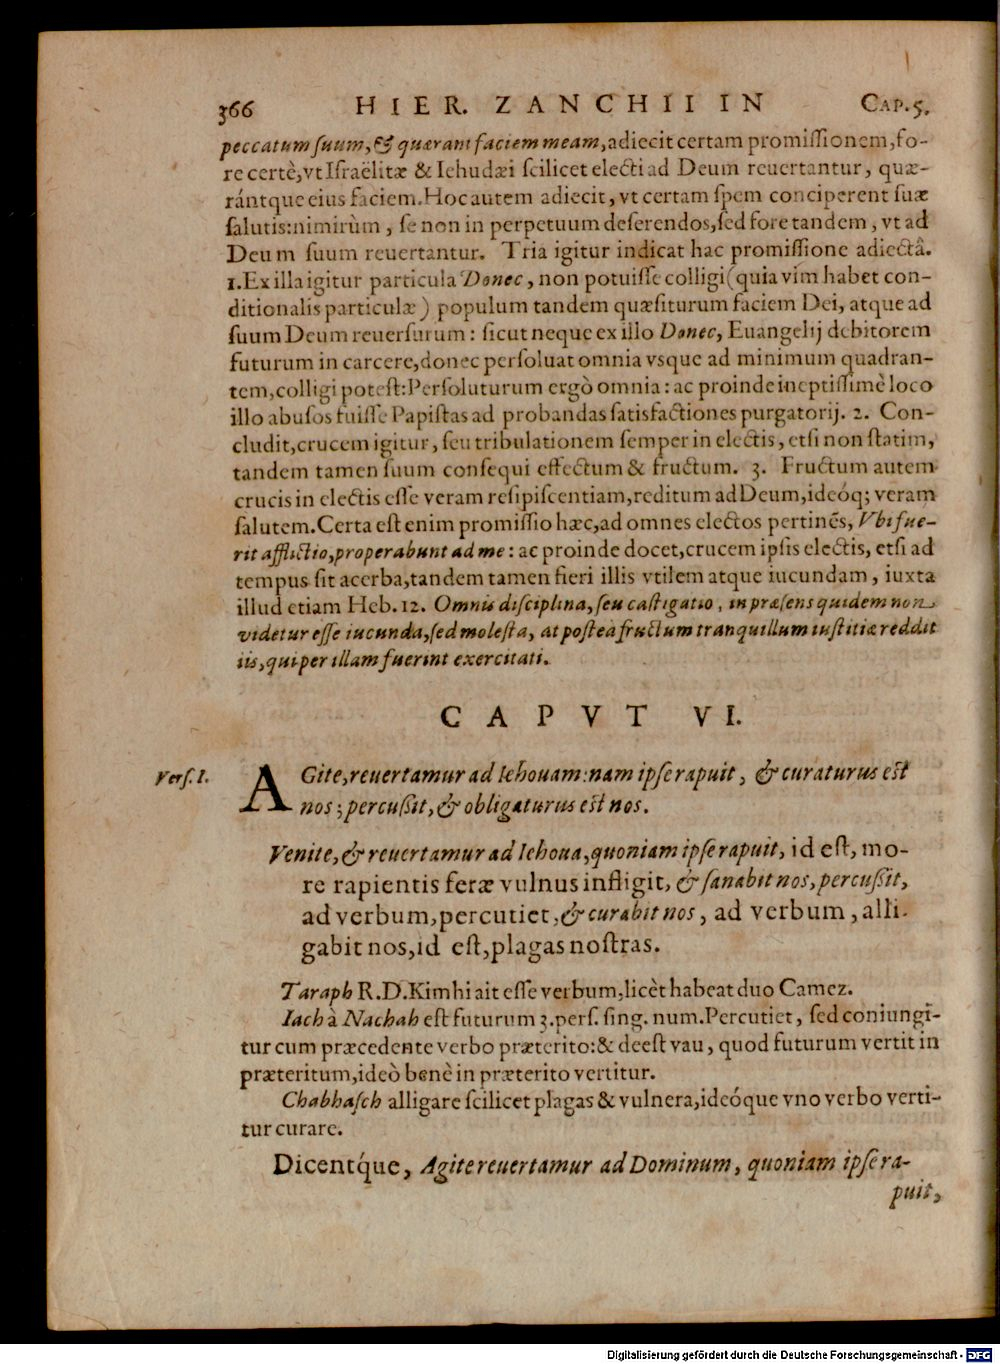 366 HIER. ZANCHII IN CAP. 5.
peccatum suum, & quærant faciem meam, adiecit certam promissionem, fo-
re certè, vt Israëlitæ & Iehudæi scilicet electi ad Deum reuertantur, quæ-
rántque eius faciem. Hoc autem adiecit, vt certam spem conciperent suæ
salutis: nimirùm, se non in perpetuum deserendos, sed fore tandem, vt ad
Deum suum reuertantur. Tria igitur indicat hac promissione adiectâ.
1. Ex illa igitur particula Donec, non potuisse colligi (quia vim habet con-
ditionalis particulæ) populum tandem quæsiturum faciem Dei, atque ad
suum Deum reuersurum: sicut neque ex illo Donec, Euangelij debitorem
futurum in carcere, donec persoluat omnia vsque ad minimum quadran-
tem, colligi potest: Persoluturum ergò omnia: ac proinde ineptissimè loco
illo abusos fuisse Papistas ad probandas satisfactiones purgatorij. 2. Con-
cludit, crucem igitur, seu tribulationem semper in electis, etsi non statim,
tandem tamen suum consequi effectum & fructum. 3. Fructum autem
crucis in electis esse veram resipiscentiam, reditum ad Deum, ideóq; veram
salutem. Certa est enim promissio hæc, ad omnes electos pertinēs, Vbi fue-
rit afflictio, properabunt ad me: ac proinde docet, crucem ipsis electis, etsi ad
tempus sit acerba, tandem tamen fieri illis vtilem atque iucundam, iuxta
illud etiam Heb. 12. Omnis disciplina, seu castigatio, in præsens quidem non
videtur esse iucunda, sed molesta, at posteà fructum tranquillum iustitiæ reddit
iis, qui per illam fuerint exercitati.
CAPVT VI.
Vers. I. AGite, reuertamur ad Iehouam: nam ipse rapuit, & curaturus est
nos; percussit, & obligaturus est nos.
Venite, & reuertamur ad Iehoua, quoniam ipse rapuit, id est, mo-
re rapientis feræ vulnus infligit, & sanabit nos, percussit,
ad verbum, percutiet, & curabit nos, ad verbum, alli-
gabit nos, id est, plagas nostras.
Taraph R. D. Kimhi ait esse verbum, licèt habeat duo Camez.
Iach à Nachah est futurum 3. pers. sing. num. Percutiet, sed coniungi-
tur cum præcedente verbo præterito: & deest vau, quod futurum vertit in
præteritum, ideò benè in præterito vertitur.
Chabhasch alligare scilicet plagas & vulnera, ideóque vno verbo verti-
tur curare.
Dicentq́ue, Agite reuertamur ad Dominum, quoniam ipse ra-
puit,
Digitalisierung gefördert durch die Deutsche Forschungsgemeinschaft - DFG